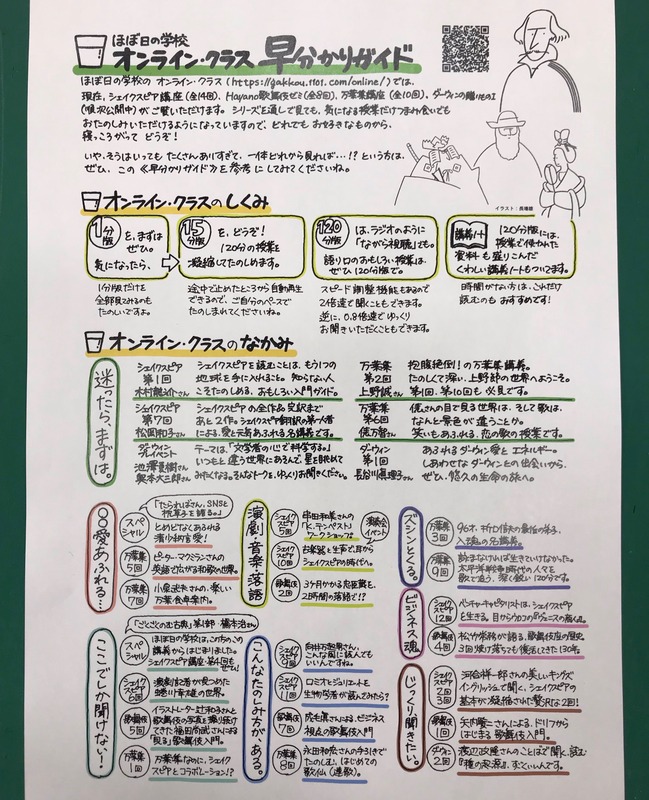 ほぼ日の学校
オンライン・クラス 早分かりガイド
ほぼ日の学校の オンライン・クラス (https://gakkou.1101.com/online/) では、
現在、シェイクスピア講座(全14回)、Hayano歌舞伎ゼミ(全8回)、万葉集講座(全10回)、ダーウィンの贈りもの I
(順次公開中) がご覧いただけます。シリーズを通しで見ても、気になる授業だけつまみ食いでも
おたのしみいただけるようになっていますので、どれでもお好きなものから、
寝っころがって どうぞ!
いや、そうはいっても たくさんありすぎて、一体どれから見れば…!? という方は、
ぜひ、この 《早分かりガイド》を参考に してみてくださいね。
イラスト:長場雄
オンライン・クラスのしくみ
1分版 を、まずは ぜひ。
気になったら、
1分版だけを
全部見てみるのも
たのしいですよ。
15分版 を、どうぞ!
120分の授業を
凝縮してたのしめます。
途中で止めたところから自動再生
できるので、ご自分のペースで
たのしまれてくださいね。
120分版 は、ラジオのように
「ながら視聴」でも。
語り口のおもしろい授業は
ぜひ120分版で。
スピード調整機能もあるので
2倍速で聞くこともできます。
逆に、0.8倍速でゆっくり
お聞きいただくこともできます。
講義ノート 120分版には、
授業で使われた
資料も盛りこんだ
くわしい講義ノートもついてます。
時間がない方は、これだけ
読むのも おすすめです!
オンライン・クラスのなかみ
迷ったら、まずは。
シェイクスピア
第1回
木村龍之介さん
シェイクスピアを読むことは、もう1つの
地球を手に入れること。知らない人
こそたのしめる、おもしろい入門ガイド。
シェイクスピア
第7回
松岡和子さん
シェイクスピアの全作品完訳まで
あと2作。シェイクスピア翻訳の第一人者
による、愛と元気あふれる名講義です。
ダーウィン
プレイベント
池澤夏樹さん
奥本大三郎さん
テーマは、「文学者の心で科学する。」
いつもと違う世界にあそんで、星を眺めて
みたくなる。そんなトークを、ゆっくりお聞きください。
万葉集
第2回
上野誠さん
抱腹絶倒!の万葉集講義。
たのしくて深い、上野節の世界へようこそ。
第1回、第10回も必見です。
万葉集
第6回
俵万智さん
俵さんの目で見る世界は、そして歌は、
なんと景色が違うことか。
笑いもあふれる、恋の歌の授業です。
ダーウィン
第1回
長谷川眞理子さん
あふれるダーウィン愛とエネルギー。
しあわせなダーウィンとの出会いから、
ぜひ、悠久の生命の旅へ。
○○愛あふれる…
スペシャル
「たらればさん、SNSと
枕草子を語る。」
とめどなくあふれる
清少納言愛!
万葉集
5回
ピーター・マクミランさんの
英語でひろがる和歌の世界。
万葉集
7回
小泉武夫さんの、楽しい
万葉・食卓案内。
演劇 音楽 落語
シェイクスピア
5回
串田和美さんの
「K.テンペスト」
ワークショップ
演談会
イベント
シェイクスピア
10回
古楽器と生声で、耳から
シェイクスピアの時代へ。
歌舞伎
2回
3ヶ月かかる忠臣蔵を、
2時間の落語で!?
ズシンとくる。
万葉集
3回
入魂の名講義。
万葉集
9回
詠まなければ生きていけなかった。
太平洋戦争時代の人々を
歌で追う、深く鋭い120分です。
ビジネス魂
シェイクスピア
12回
ベンチャーキャピタリストは、シェイクスピア
と生きる。目からウロコの『ヴェニスの商人』。
歌舞伎
4回
3回焼け落ちても復活してきた130年。
じっくり聞きたい。
シェイクスピア
2回
3回
河合祥一郎さんの美しいキングズ
イングリッシュで聞く、シェイクスピアの
基本が凝縮された贅沢な2回!
歌舞伎
1回
矢内賢二さんによる、ドリフから
はじまる 歌舞伎入門。
ダーウィン
2回
渡辺政隆さんのことばで聞く、読む
『種の起源』。すごいんです。
ここでしか聞けない!
スペシャル
「ごくごくのむ古典」第1部 橋本治さん
ほぼ日の学校は、この方のこの
講義からはじまりました。
シェイクスピア講座・第4回も
ぜひ!
シェイクスピア
6回
演劇記者が見つめた
蜷川幸雄の世界。
歌舞伎
5回
イラストレーター辻和子さんと
歌舞伎の写真を撮り続け
てきた福田尚武さんによる
「見る」歌舞伎入門。
万葉集
1回
万葉集なのに、シェイク
スピアとコラボレーション!?
こんなたのしみ方がある。
シェイクスピア
9回
向井万起男さん、
こんな風に読んでも
いいんですね。
シェイクスピア
11回
ロミオとジュリエットを
生物学者が読んでみたら?
歌舞伎
7回
成毛眞さんによる、ビジネス
視点の歌舞伎入門
万葉集
8回
永田和宏さんの手引きで
たのしむ、はじめての
歌仙(連歌)。